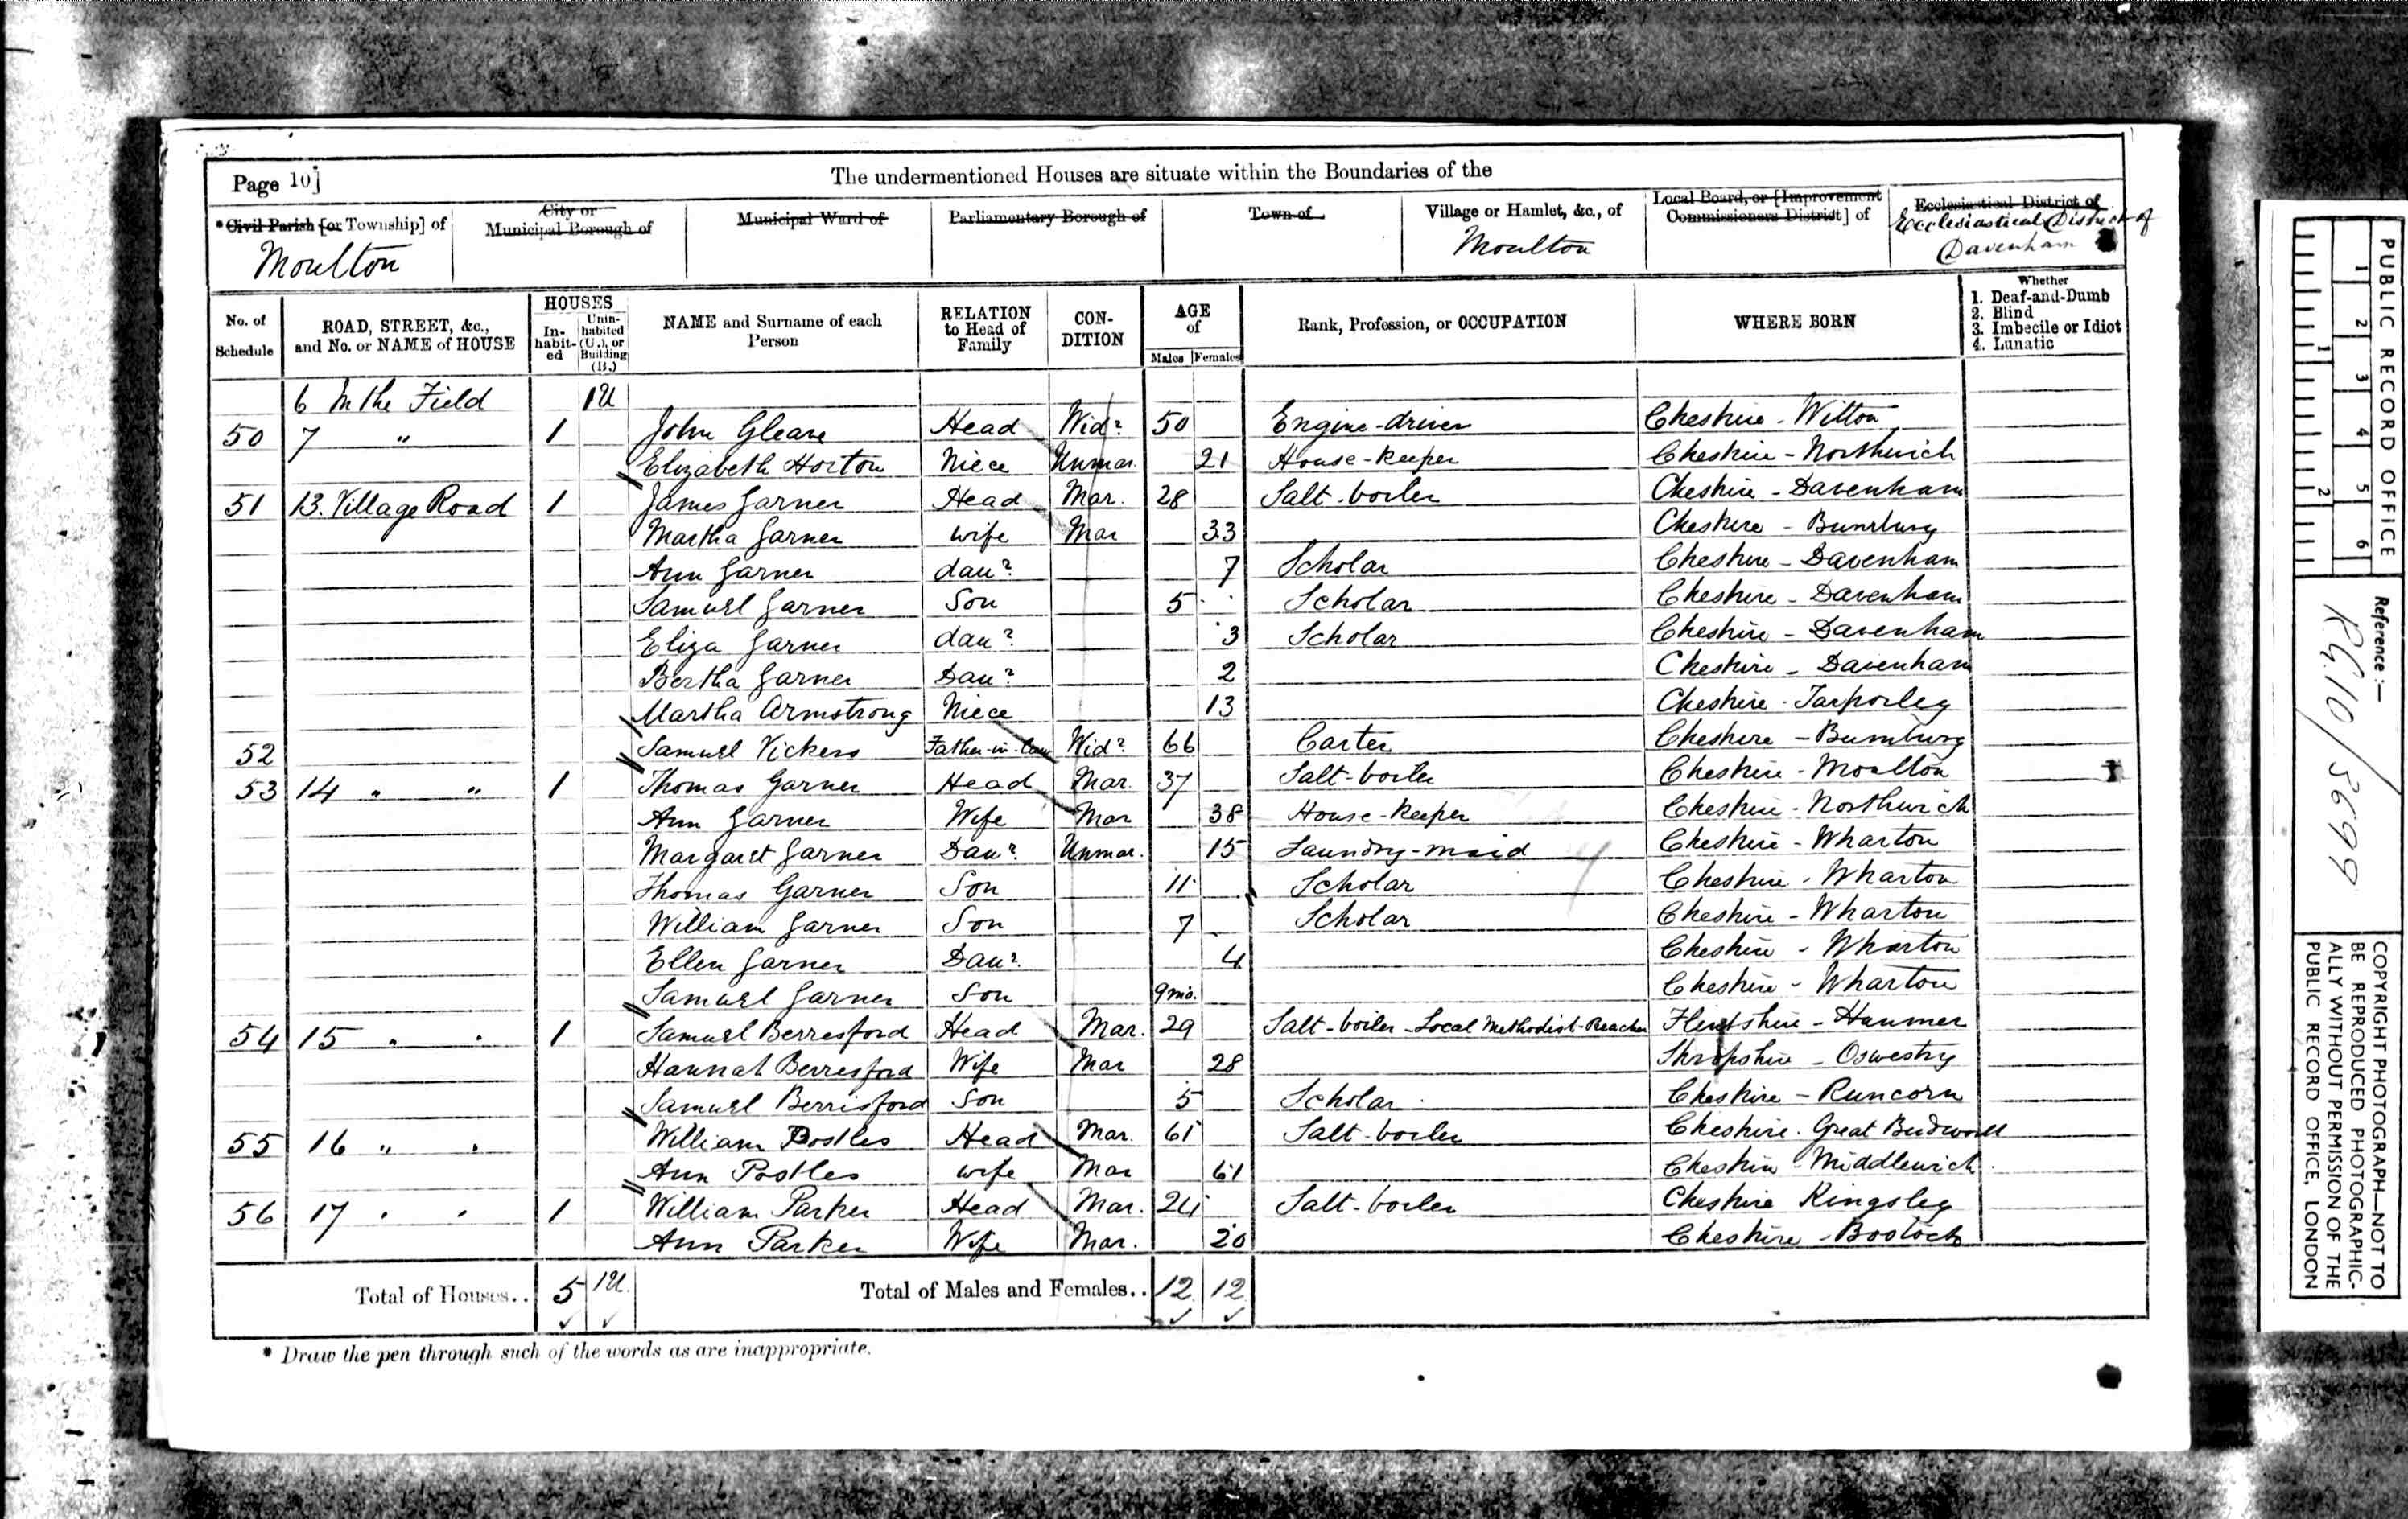 Page 10]
The undermentioned Houses are situate within the Boundaries of the
*Civil Parish [or Township] of
Moulton
City or Municipal Borough of
Municipal Ward of
Parliamentary Borough of
Town of
Village or Hamlet, &c., of
Moulton
Local Board, or [Improvement Commissioners District] of
Ecclesiastical District of
Ecclesiastical District of
Davenham
No. of Schedule
ROAD, STREET, &c., and No. or NAME of HOUSE
HOUSES
In-habit-ed
Unin-habited (U.), or Building (B.)
NAME and Surname of each Person
RELATION to Head of Family
CON-DITION
AGE of
Males Females
Rank, Profession, or OCCUPATION
WHERE BORN
Whether
1. Deaf-and-Dumb
2. Blind
3. Imbecile or Idiot
4. Lunatic
6 In the Field 1U
50 7 " 1 John Gleave Head Widr 50 Engine-driver Cheshire - Witton
Elizabeth Horton Niece Unmar. 21 House-keeper Cheshire - Northwich
51 13. Village Road 1 James Garner Head Mar. 28 Salt-boiler Cheshire - Davenham
Martha Garner wife Mar 33 Cheshire - Bunbury
Ann Garner daur 7 Scholar Cheshire - Davenham
Samuel Garner Son 5 Scholar Cheshire - Davenham
Eliza Garner daur 3 Scholar Cheshire - Davenham
Bertha Garner Daur 2 Cheshire - Davenham
Martha Armstrong Niece 13 Cheshire - Tarporley
52 Samuel Vickers Father-in-law Widr 66 Carter Cheshire - Bunbury
53 14 " " 1 Thomas Garner Head Mar. 37 Salt-boiler Cheshire - Moulton
Ann Garner Wife Mar 38 House-keeper Cheshire - Northwich
Margaret Garner Daur Unmar. 15 Laundry-maid Cheshire - Wharton
Thomas Garner Son 11 Scholar Cheshire - Wharton
William Garner Son 7 Scholar Cheshire - Wharton
Ellen Garner Daur 4 Cheshire - Wharton
Samuel Garner Son 9mo. Cheshire - Wharton
54 15 " " 1 Samuel Berresford Head Mar. 29 Salt-boiler - Local Methodist-Preacher Flintshire - Hanmer
Hannah Berresford Wife Mar 28 Shropshire - Oswestry
Samuel Berrisford Son 5 Scholar Cheshire - Runcorn
55 16 " " William Postles Head Mar. 61 Salt-boiler Cheshire. Great Budworth
Ann Postles wife Mar 61 Cheshire - Middlewich
56 17 " " 1 William Parker Head Mar. 24 Salt-boiler Cheshire Kingsley
Ann Parker Wife Mar. 20 Cheshire - Bostock
Total of Houses.. 5 1U. Total of Males and Females.. 12 12
* Draw the pen through such of the words as are inappropriate.
PUBLIC RECORD OFFICE
1 2 3 4 5 6
1 2
Reference:-
RG 10/3699
COPYRIGHT PHOTOGRAPH—NOT TO
BE REPRODUCED PHOTOGRAPHIC-
ALLY WITHOUT PERMISSION OF THE
PUBLIC RECORD OFFICE, LONDON